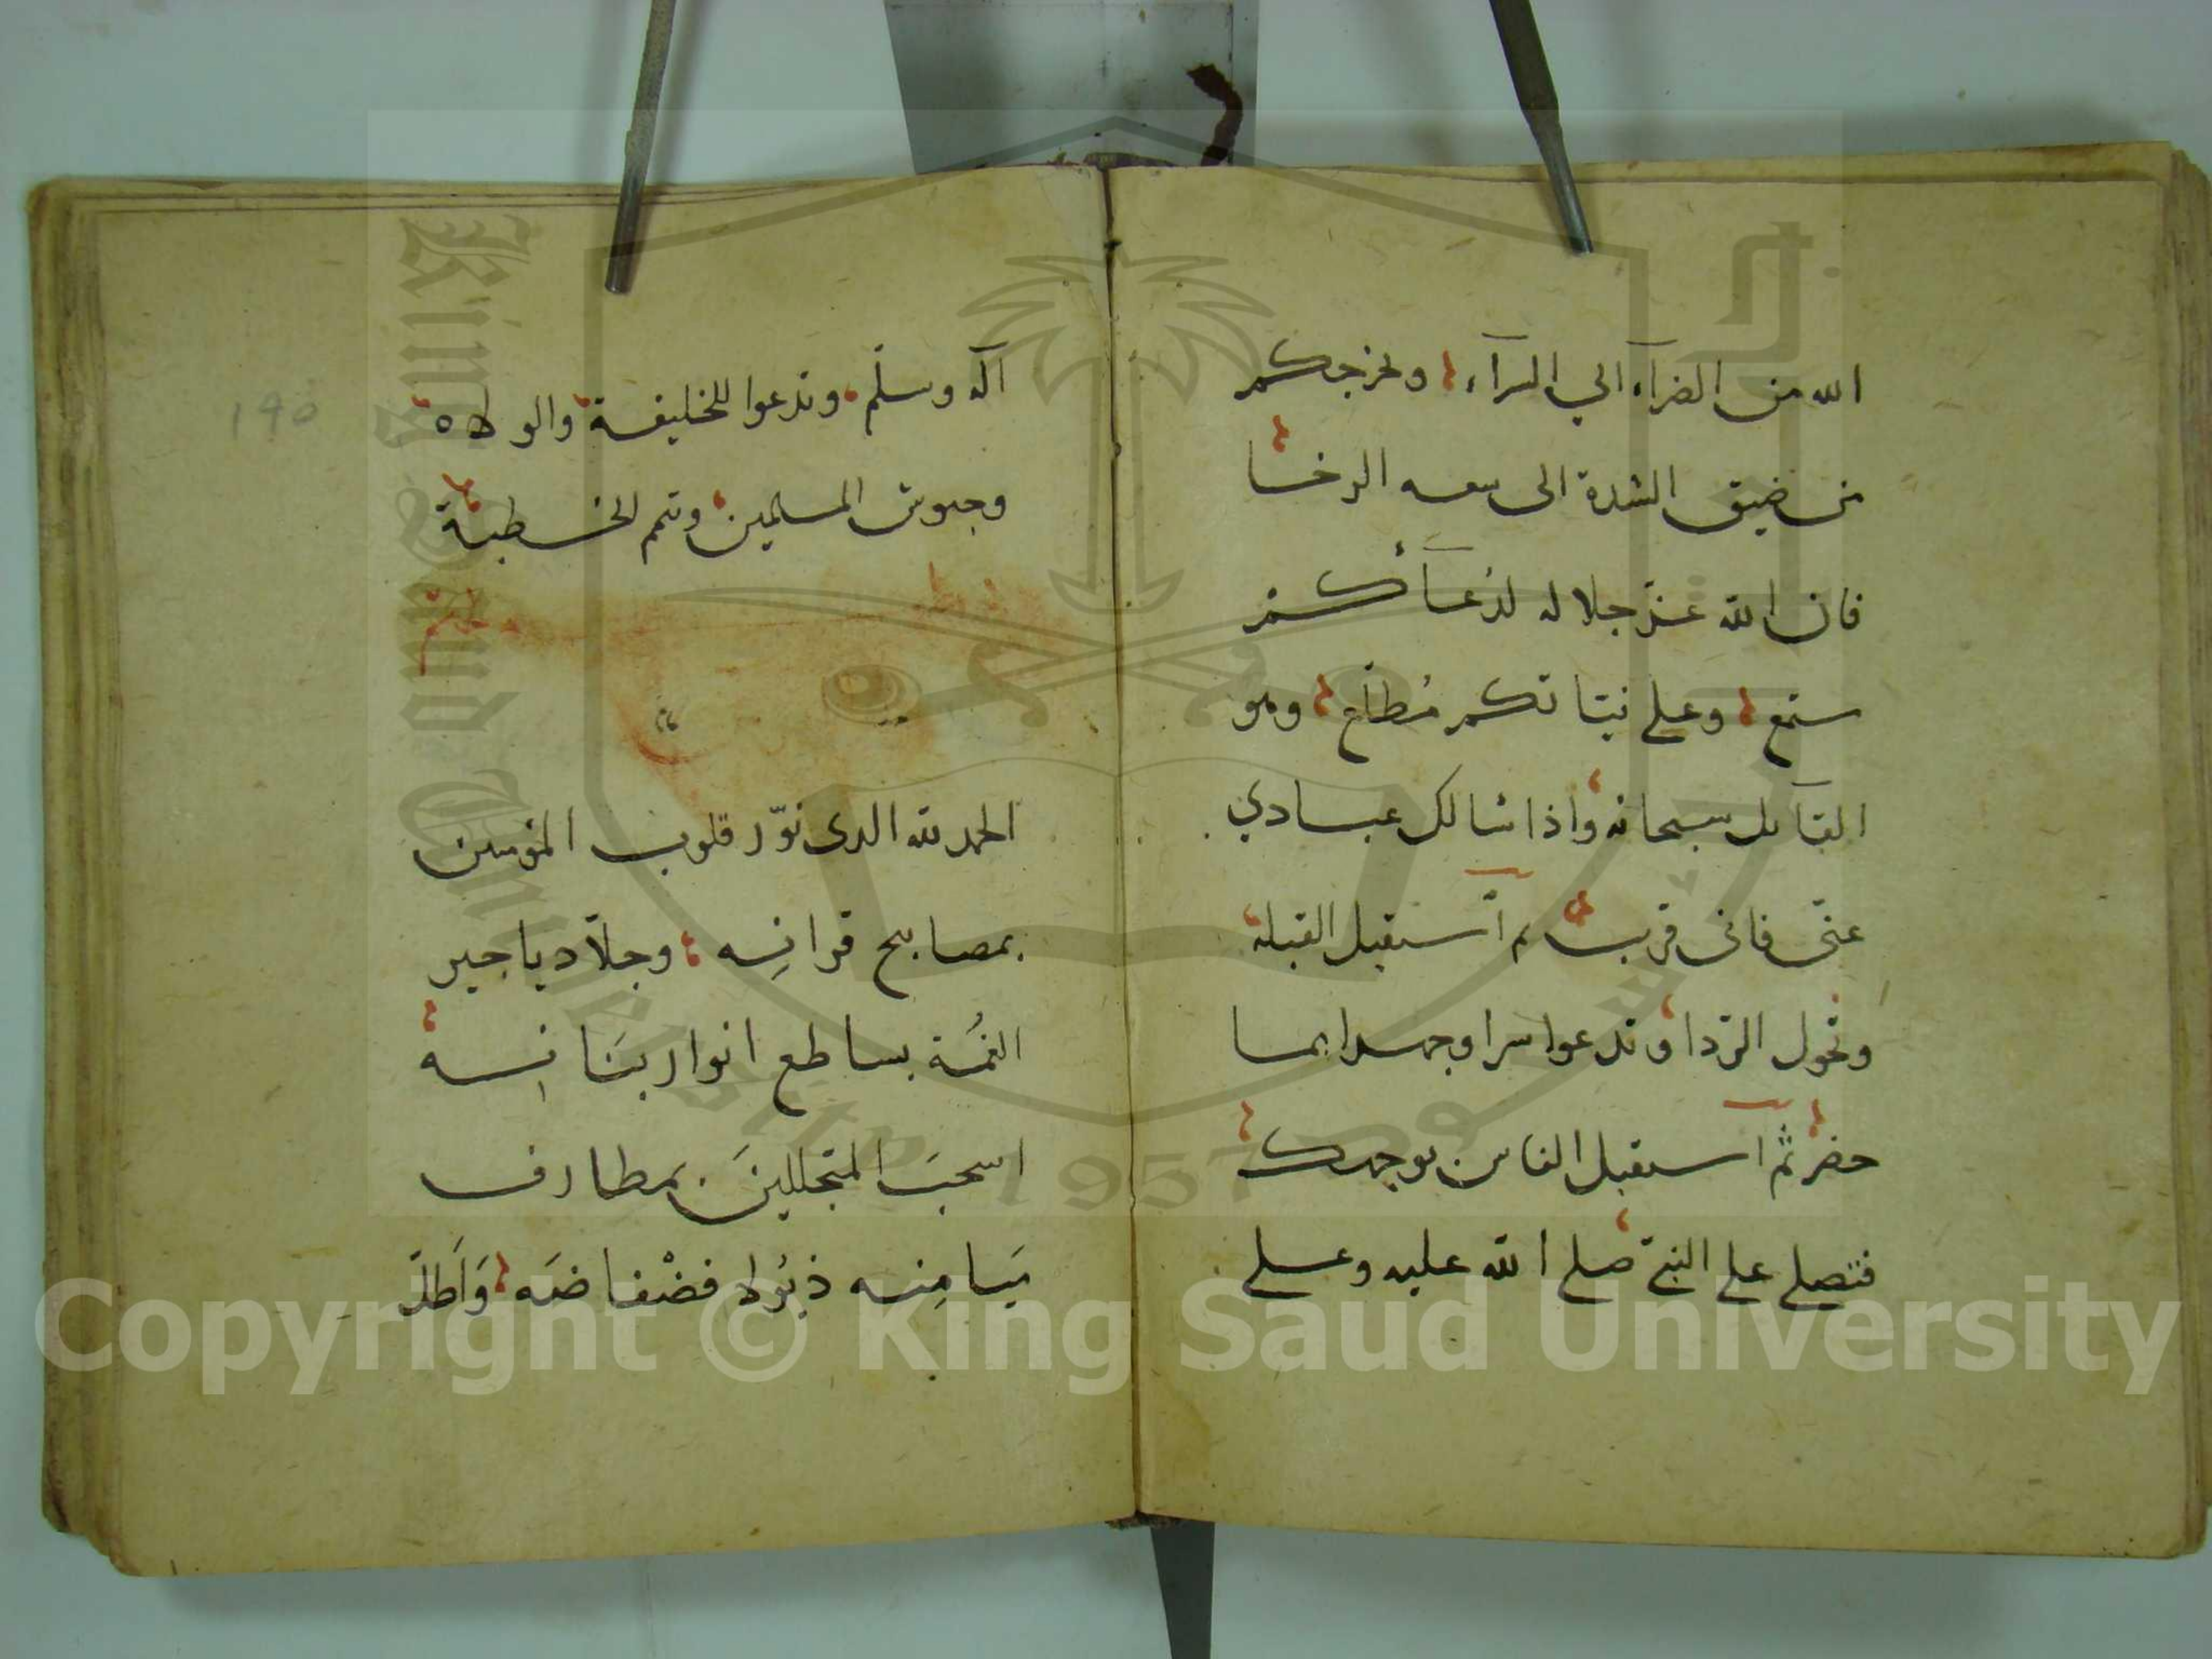 الله من الضرآء الي السرآء، ويخرجكم
من ضيق الشدة الى سعه الرخا
فان الله عزّ جلاله لدُعآئكم
ستمع وعلى نيّاتكم مُطّلع وهو
القآىل سبحانه واذا سالك عبادي
عنّى فانى قريب ثم آستقبل القبله
وتحول الرّدا وتدعوا سرا وجهرا بما
حضر ثمّ آستقبل الناس بوجهك
فتصلي على النبيّ صلى الله عليه وعلى
آله وسلّم وتدعوا للخليفة والولاه
وجيوش المسلمين وتتم الخطبة
١٩٥
الحمد لله الدى نوّر قلوب المؤمنين
بمصابيح قرانِه، وجلاّ دياجير
الغمُة بساطع انوار بَيَانِه
اسحبَ المتجللينَ بمطارف
ميَامِنِه ذيُولا فضْفاضَه وَاَطلّ
Copyright © King Saud University
King Saud University
1957